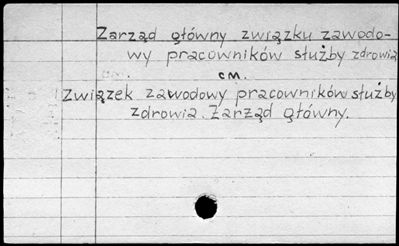 Zarząd główny związku zawodo-
wy pracowników służby zdrowia
см.
Związek zawodowy pracowników służby
zdrowia. Zarząd główny.